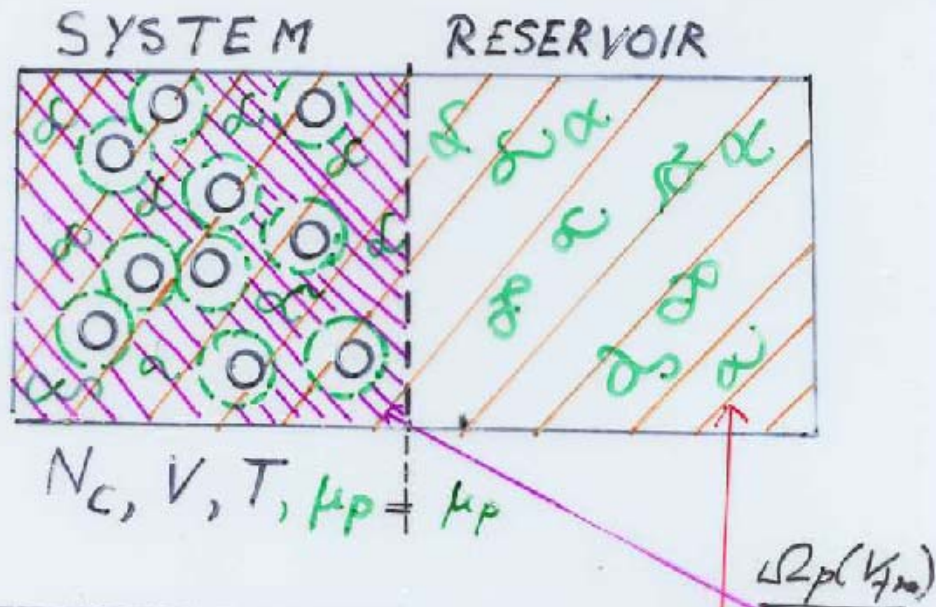 SYSTEM RESERVOIR
N_C, V, T, μp = μp
Ωp(V